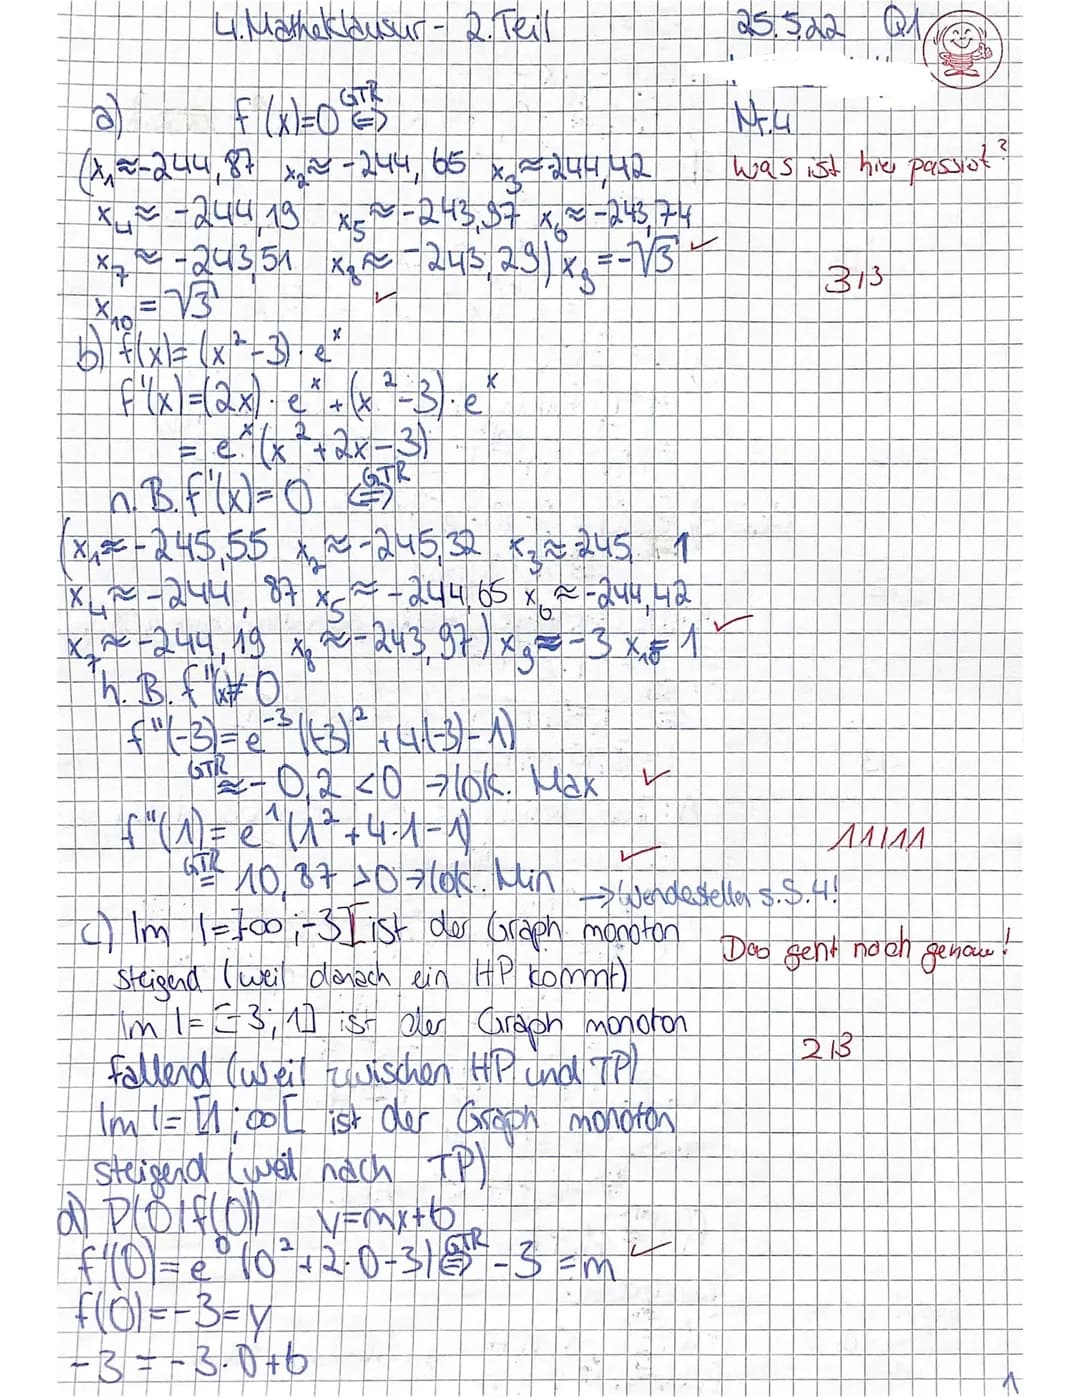 4. Matheklausur - 2. Teil 25.5.22 Q1
a) f(x)=0 GTR ⇔ Nr. 4
(x₁≈-244,87 x₂≈-244,65 x₃≈-244,42 Was ist hier passiert?
x₄≈-244,19 x₅≈-243,97 x₆≈-243,74
x₇≈-243,51 x₈≈-243,29) x₉=-√3 ✓
3/3
x₁₀=√3 ✓
b) f(x)=(x²-3)·eˣ
f'(x)=(2x)·eˣ+(x²-3)·eˣ
= eˣ(x²+2x-3)
n.B. f'(x)=0 GTR ⇔
(x₁≈-245,55 x₂≈-245,32 x₃≈-245,1
x₄≈-244,87 x₅≈-244,65 x₆≈-244,42
x₇≈-244,19 x₈≈-243,97) x₉=-3 x₁₀=1 ✓
h.B. f''(x)≠0
f''(-3)=e⁻³((-3)²+4(-3)-1)
GTR ≈-0,2<0 → lok. Max ✓
f''(1)=e¹(1²+4·1-1) 11/11
GTR = 10,87>0 → lok. Min ✓ → Wendestellen s.S.4!
c) Im I=]∞;-3] ist der Graph monoton Das geht noch genauer!
steigend (weil danach ein HP kommt)
Im I=[-3;1] ist der Graph monoton
2/3
fallend (weil zwischen HP und TP)
Im I=[1;∞[ ist der Graph monoton
steigend (weil nach TP)
d) P(0|f(0)) y=mx+b
f'(0)=e⁰(0²+2·0-3) GTR ⇔ -3=m ✓
f(0)=-3=y
-3=-3·0+b
1